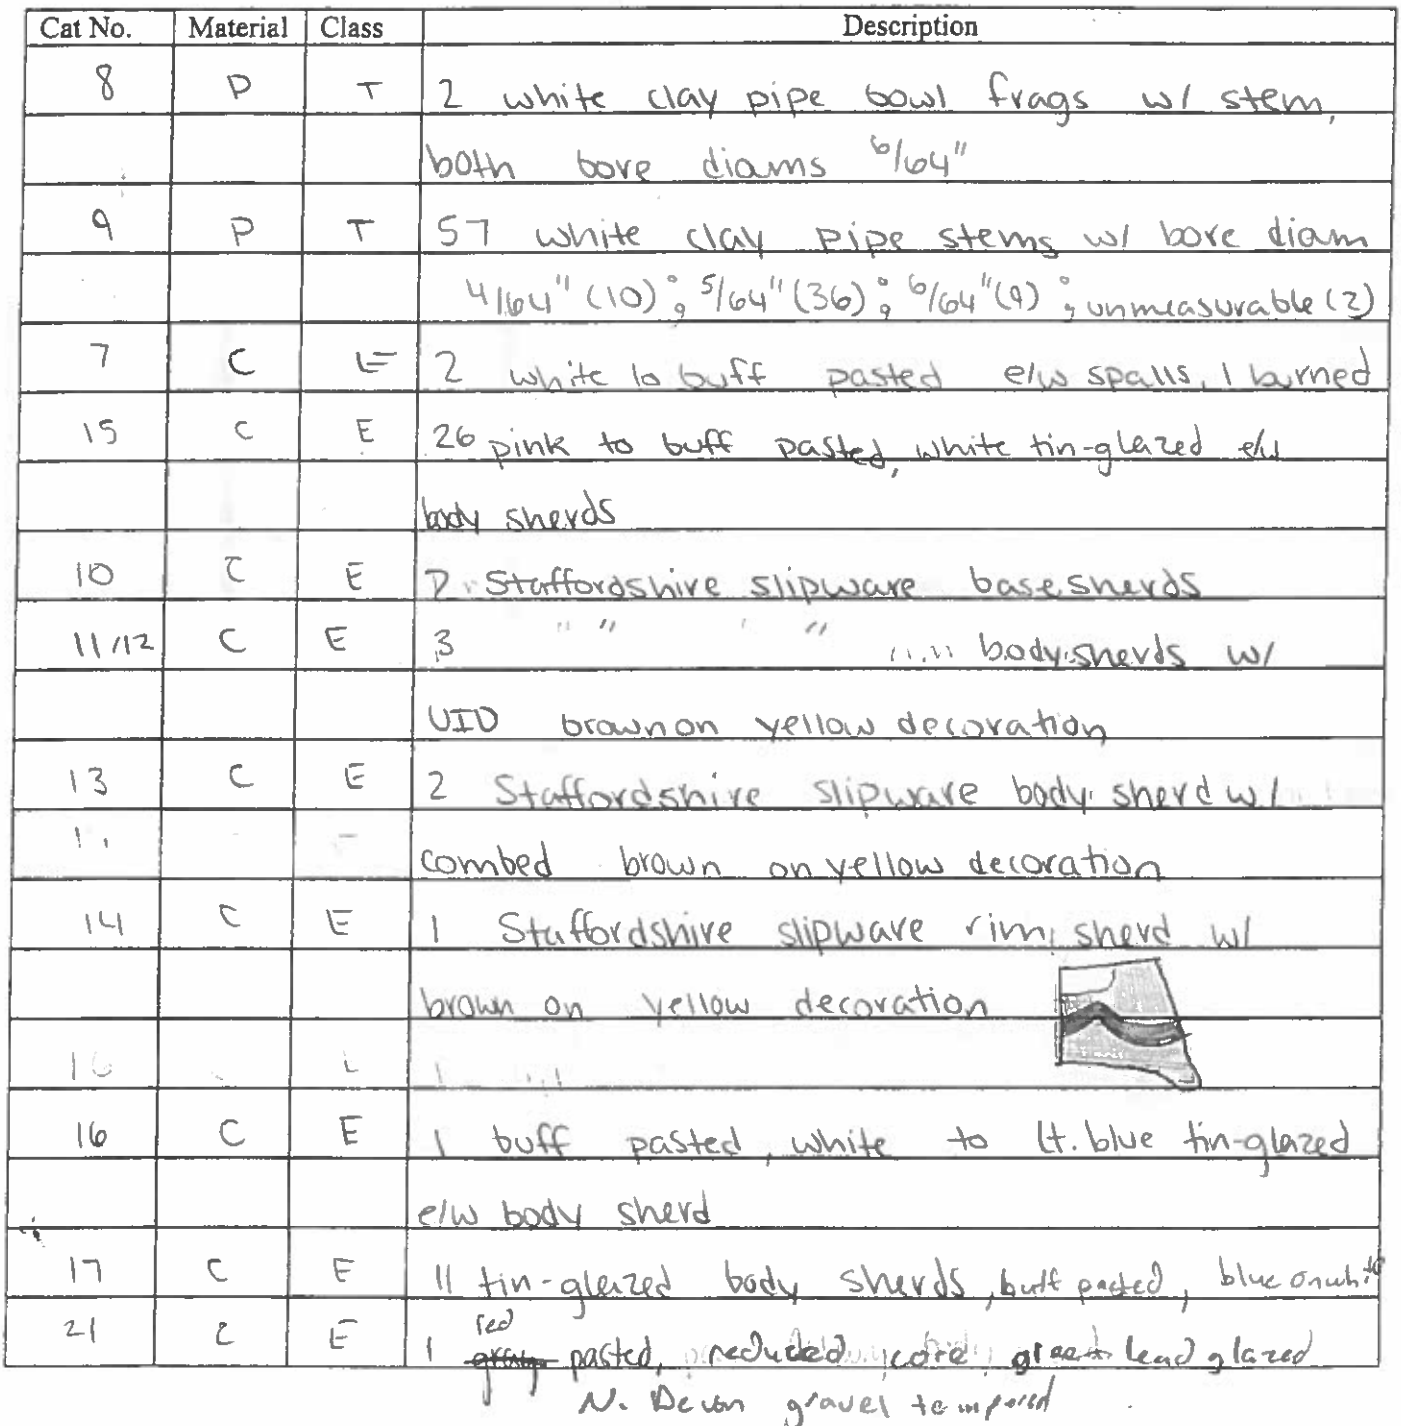 Cat No. Material Class Description
8 P T 2 white clay pipe bowl frags w/ stem,
both bore diams 6/64"
9 P T 57 white clay pipe stems w/ bore diam
4/64" (10); 5/64" (36); 6/64" (9); unmeasurable (2)
7 C E 2 white to buff pasted e/w spalls, 1 burned
15 C E 26 pink to buff pasted, white tin-glazed e/w
body sherds
10 C E 2 Staffordshire slipware base sherds
11/12 C E 3 " " " " " body sherds w/
UID brown on yellow decoration
13 C E 2 Staffordshire slipware body sherd w/
combed brown on yellow decoration
14 C E 1 Staffordshire slipware rim sherd w/
brown on yellow decoration
16
16 C E 1 buff pasted, white to lt. blue tin-glazed
e/w body sherd
17 C E 11 tin-glazed body sherds, buff pasted, blue on white
red
21 C E 1 pasted, reduced core, lead glazed
N. Devon gravel tempered